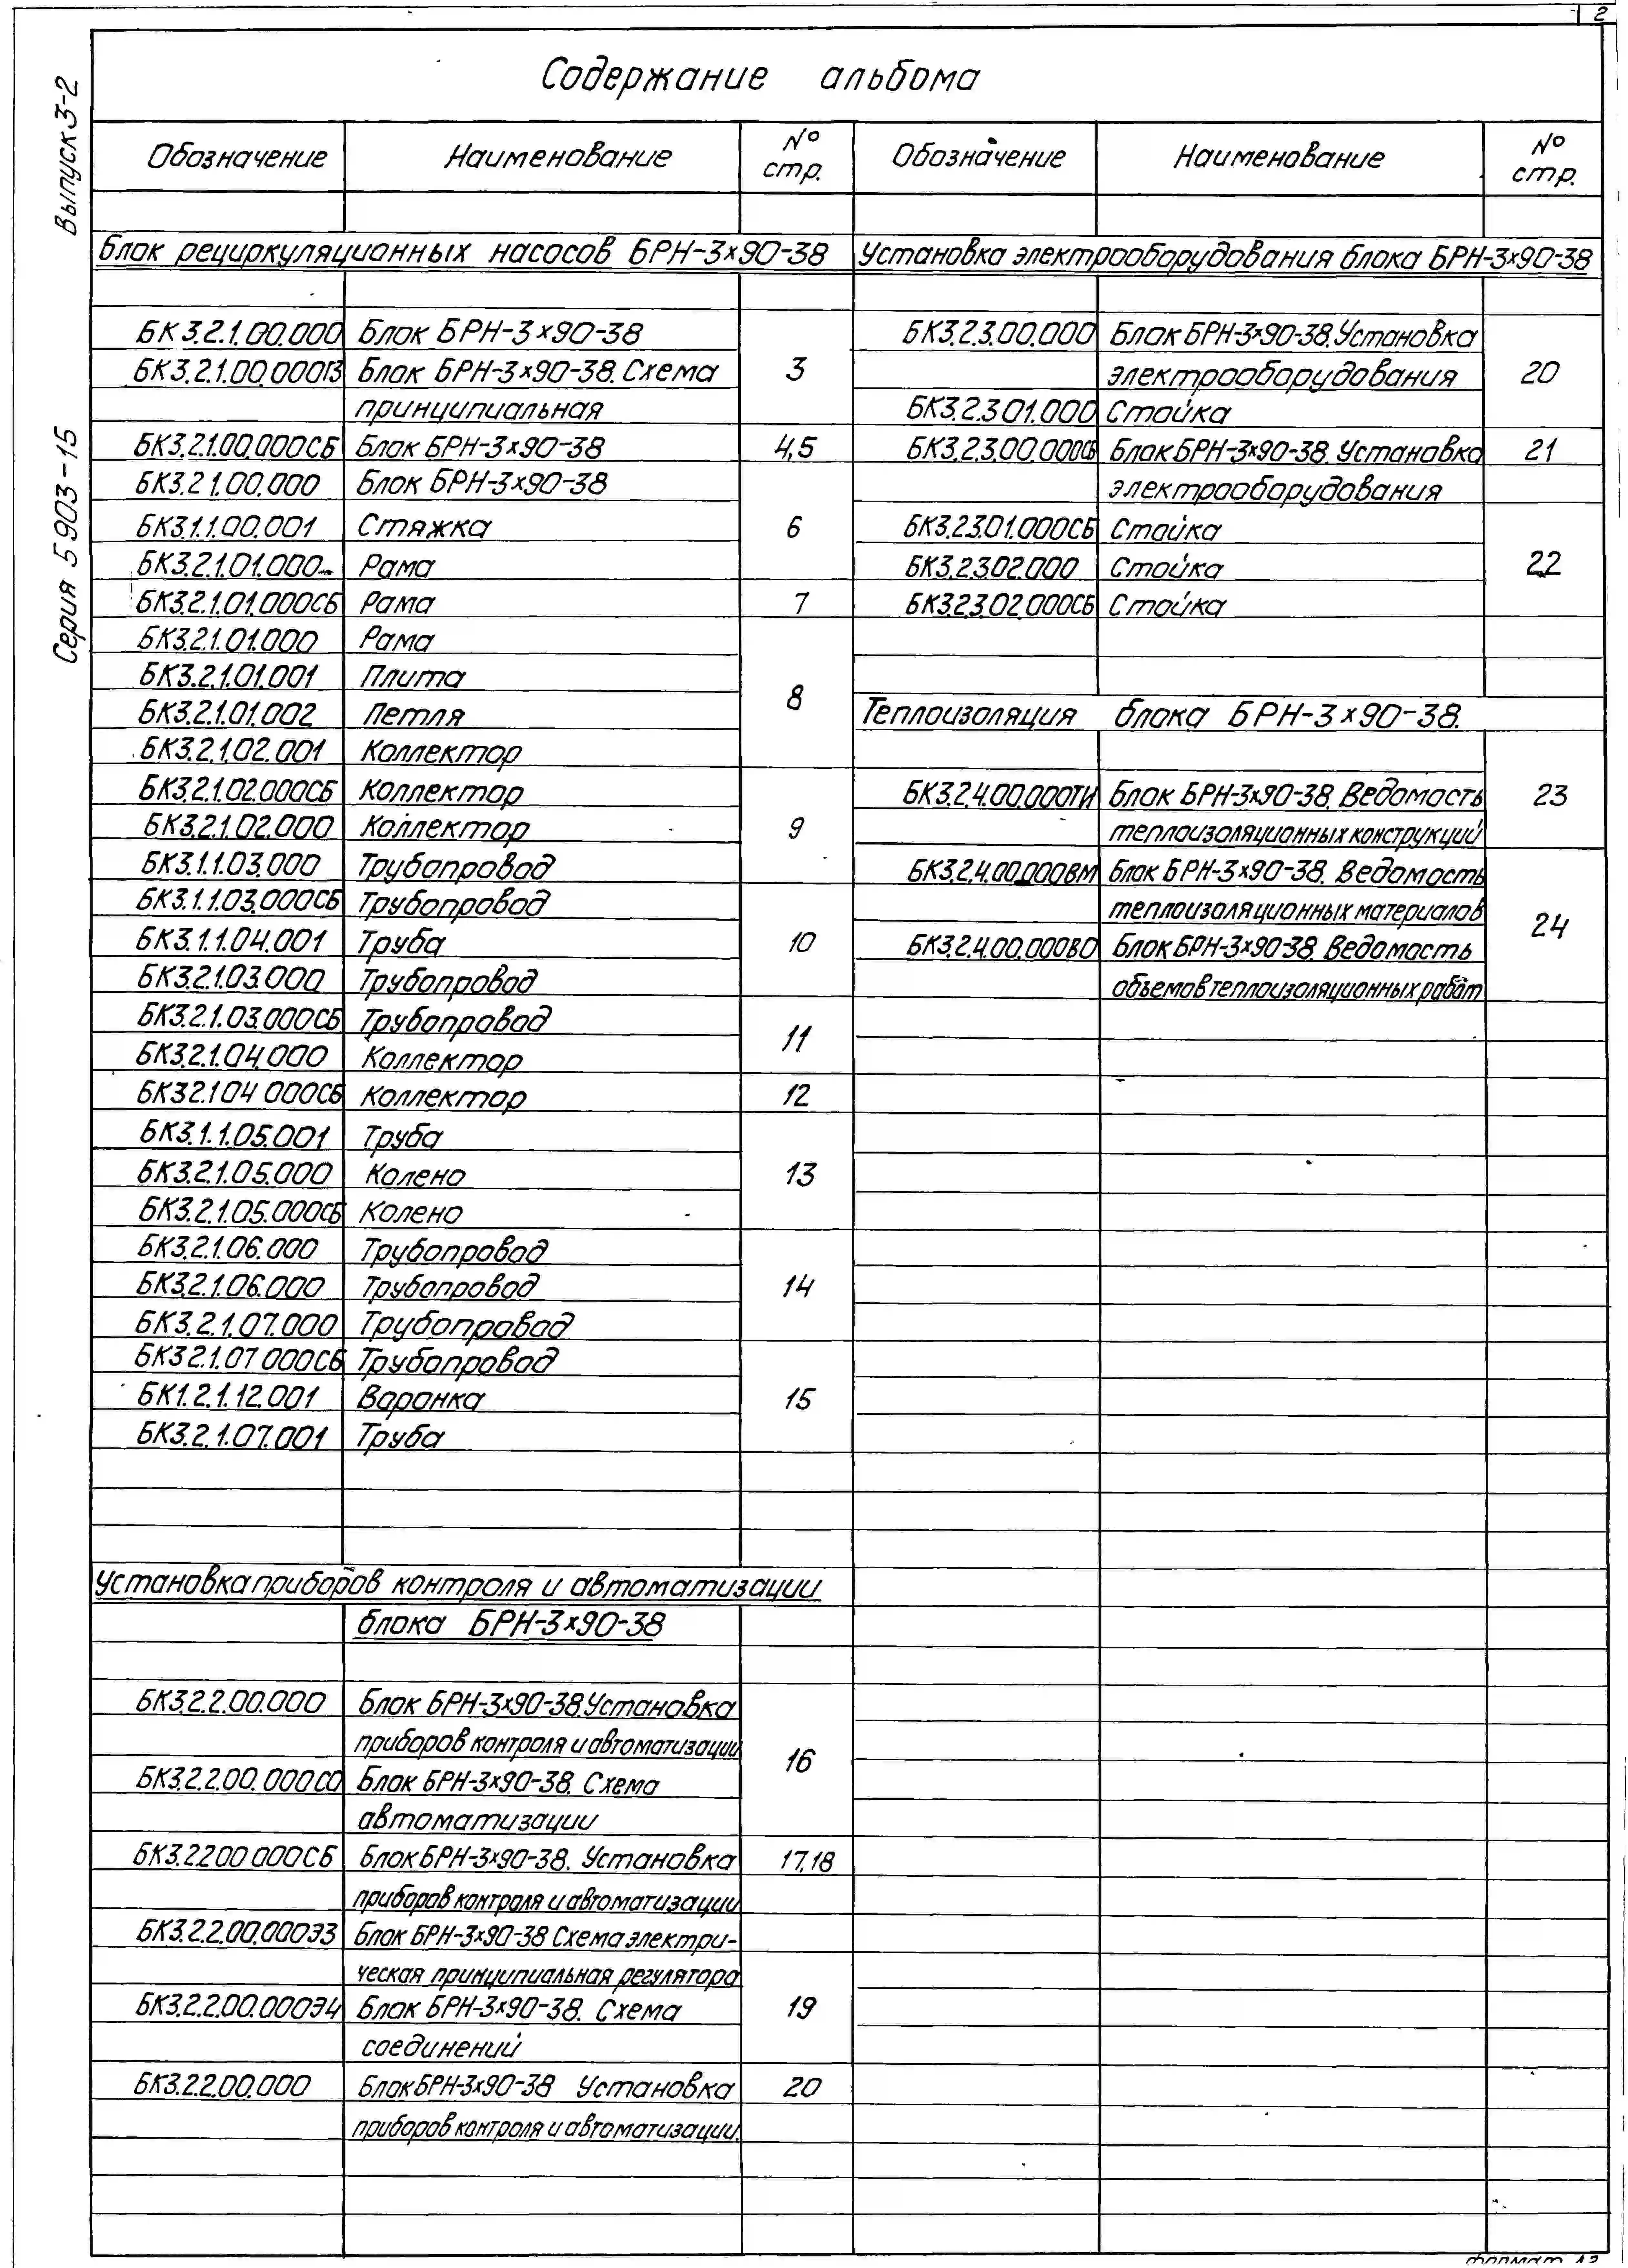 2
Выпуск 3-2
Серия 5903-15
Содержание альбома
Обозначение Наименование № стр.
Блок рециркуляционных насосов БРН-3х90-38
БК3.2.1.00.000 Блок БРН-3х90-38
БК3.2.1.00.000ПЗ Блок БРН-3х90-38. Схема 3
принципиальная
БК3.2.1.00.000СБ Блок БРН-3х90-38 4,5
БК3.2 1.00.000 Блок БРН-3х90-38
БК3.1.1.00.001 Стяжка 6
БК3.2.1.01.000 Рама
БК3.2.1.01.000СБ Рама 7
БК3.2.1.01.000 Рама
БК3.2.1.01.001 Плита
БК3.2.1.01.002 Петля 8
БК3.2.1.02.001 Коллектор
БК3.2.1.02.000СБ Коллектор
БК3.2.1.02.000 Коллектор 9
БК3.1.1.03.000 Трубопровод
БК3.1.1.03.000СБ Трубопровод
БК3.1.1.04.001 Труба 10
БК3.2.1.03.000 Трубопровод
БК3.2.1.03.000СБ Трубопровод 11
БК3.2.1.04.000 Коллектор
БК3 2.1 04 000СБ Коллектор 12
БК3.1.1.05.001 Труба
БК3.2.1.05.000 Колено 13
БК3.2.1.05.000СБ Колено
БК3.2.1.06.000 Трубопровод
БК3.2.1.06.000 Трубопровод 14
БК3.2.1.07.000 Трубопровод
БК3 2.1.07 000СБ Трубопровод
БК1.2.1.12.001 Воронка 15
БК3.2.1.07.001 Труба
Установка приборов контроля и автоматизации
блока БРН-3х90-38
БК3.2.2.00.000 Блок БРН-3х90-38.Установка
приборов контроля и автоматизации
БК3.2.2.00.000СО Блок БРН-3х90-38. Схема 16
автоматизации
БК3.2.2 00 000СБ Блок БРН-3х90-38. Установка 17,18
приборов контроля и автоматизации
БК3.2.2.00.000Э3 Блок БРН-3х90-38 Схема электри-
ческая принципиальная регулятора
БК3.2.2.00.000Э4 Блок БРН-3х90-38. Схема 19
соединений
БК3.2.2.00.000 Блок БРН-3х90-38 Установка 20
приборов контроля и автоматизации.
Обозначение Наименование № стр.
Установка электрооборудования блока БРН-3х90-38
БК3.2.3.00.000 Блок БРН-3х90-38.Установка
электрооборудования 20
БК3.2.3 01.000 Стойка
БК3.2.3.00.000СБ Блок БРН-3х90-38. Установка 21
электрооборудования
БК3.2.3.01.000СБ Стойка
БК3.2.3.02.000 Стойка 22
БК3.2.3.02.000СБ Стойка
Теплоизоляция блока БРН-3х90-38.
БК3.2.4.00.000ТИ Блок БРН-3х90-38. Ведомость 23
теплоизоляционных конструкций
БК3.2.4.00.000ВМ Блок БРН-3х90-38. Ведомость
теплоизоляционных материалов 24
БК3.2.4.00.000ВО Блок БРН-3х90-38. Ведомость
объемов теплоизоляционных работ
Формат А3